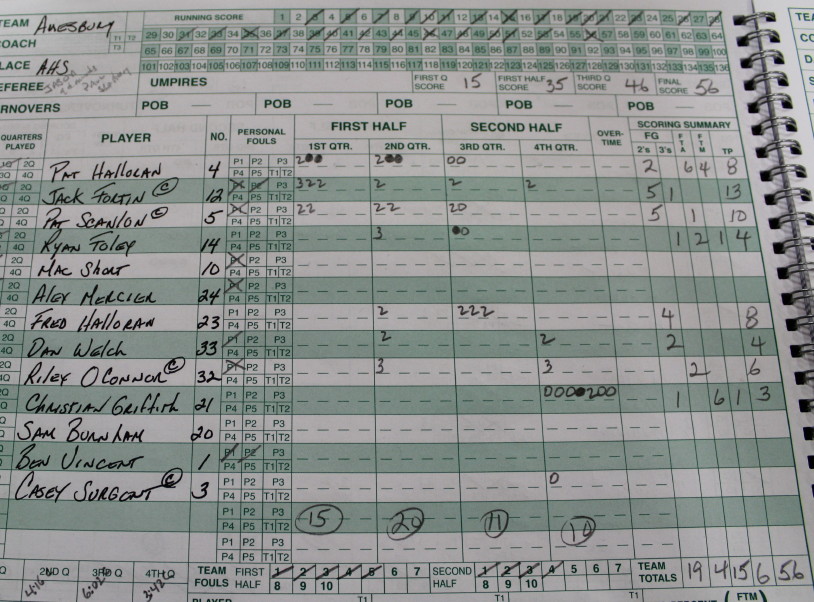 TEAM Amesbury
RUNNING SCORE 1 2 3 4 5 6 7 8 9 10 11 12 13 14 15 16 17 18 19 20 21 22 23 24 25 26 27 28
T1 T2 29 30 31 32 33 34 35 36 37 38 39 40 41 42 43 44 45 46 47 48 49 50 51 52 53 54 55 56 57 58 59 60 61 62 63 64
COACH T3 65 66 67 68 69 70 71 72 73 74 75 76 77 78 79 80 81 82 83 84 85 86 87 88 89 90 91 92 93 94 95 96 97 98 99 100
LACE AHS 101 102 103 104 105 106 107 108 109 110 111 112 113 114 115 116 117 118 119 120 121 122 123 124 125 126 127 128 129 130 131 132 133 134 135 136
REFEREE UMPIRES FIRST Q SCORE 15 FIRST HALF SCORE 35 THIRD Q SCORE 46 FINAL SCORE 56
RNOVERS POB — POB — POB — POB — POB —
QUARTERS PLAYED PLAYER NO. PERSONAL FOULS FIRST HALF SECOND HALF OVER-TIME SCORING SUMMARY
1ST QTR. 2ND QTR. 3RD QTR. 4TH QTR. FG 2's 3's FTA FTM TP
PAT HALLORAN 4 P1 P2 P3 P4 P5 T1 T2 200 200 00 2 6 4 8
JACK FORTIN C 12 P1 P2 P3 P4 P5 T1 T2 322 2 2 2 5 1 13
PAT SCANLON C 5 P1 P2 P3 P4 P5 T1 T2 22 22 20 5 1 10
RYAN FOLEY 14 P1 P2 P3 P4 P5 T1 T2 3 0 1 2 1 4
MAC SHORT 10 P1 P2 P3 P4 P5 T1 T2
ALEX MERCIER 24 P1 P2 P3 P4 P5 T1 T2
FRED HALLORAN 23 P1 P2 P3 P4 P5 T1 T2 2 222 4 8
DAN WELCH 33 P1 P2 P3 P4 P5 T1 T2 2 2 2 4
RILEY O'CONNOR C 32 P1 P2 P3 P4 P5 T1 T2 3 3 2 6
CHRISTIAN GRIFFITH 21 P1 P2 P3 P4 P5 T1 T2 0000200 1 6 1 3
SAM BURNHAM 20 P1 P2 P3 P4 P5 T1 T2
BEN VINCENT 1 P1 P2 P3 P4 P5 T1 T2
CASEY SURGENT C 3 P1 P2 P3 P4 P5 T1 T2 0
P1 P2 P3 P4 P5 T1 T2 15 20 11 10
P1 P2 P3 P4 P5 T1 T2
Q 2ND Q 3RD Q 4TH Q TEAM FOULS FIRST HALF 1 2 3 4 5 6 7 8 9 10 SECOND HALF 1 2 3 4 5 6 7 8 9 10 TEAM TOTALS 19 4 15 6 56
4:16 6:02 3:42
PLAYER T1 T1 T1 (FTM